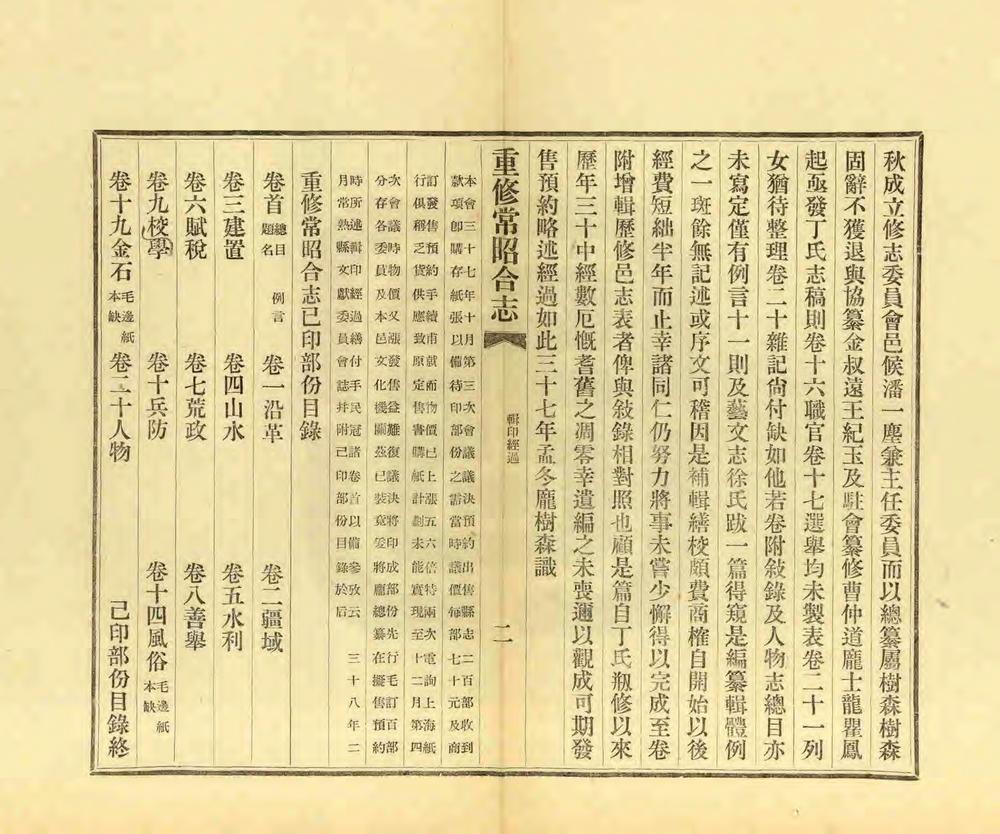 秋成立修志委員會邑候潘一塵兼主任委員而以總纂屬樹森樹森
固辭不獲退與協纂金叔遠王紀玉及駐會纂修曹仲道龐士龍瞿鳳
起亟發丁氏志稿則卷十六職官卷十七選舉均未製表卷二十一列
女猶待整理卷二十雜記尙付缺如他若卷附敍錄及人物志總目亦
未寫定僅有例言十一則及藝文志徐氏跋一篇得窺是編纂輯體例
之一斑餘無記述或序文可稽因是補輯繕校頗費商榷自開始以後
經費短絀半年而止幸諸同仁仍努力將事未嘗少懈得以完成至卷
附增輯歷修邑志表者俾與敍錄相對照也顧是篇自丁氏剏修以來
歷年三十中經數厄慨耆舊之凋零幸遺編之未喪邇以觀成可期發
售預約略述經過如此三十七年孟冬龐樹森識
重修常昭合志
輯印經過
二
本會三十七年十月第三次會議議決預約出售縣志二百部收到
款項卽購存紙張以備待印部份之需當時議價每部七十元及商
訂發售預約手續甫就而物價已上漲五六倍特兩次電詢上海紙
行俱稱乏貨供應致原定售書購紙計劃未能實現至十二月第四
次會議時物價又漲發售益難復議決將印成部份先行毛訂百部
分存各委員及本邑文化機關茲已裝竟爰將龐總纂在擬售預約
時所述輯印經過繕付手民冠諸卷首以備參攷云 三十八年二
月常熟縣文獻委員會誌幷附已印部份目錄於后
重修常昭合志已印部份目錄
卷首 總目 題名 例言 卷一沿革 卷二疆域
卷三建置 卷四山水 卷五水利
卷六賦稅 卷七荒政 卷八善舉
卷九校學 卷十兵防 卷十四風俗 毛邊紙本缺
卷十九金石 毛邊紙本缺 卷二十人物 已印部份目錄終